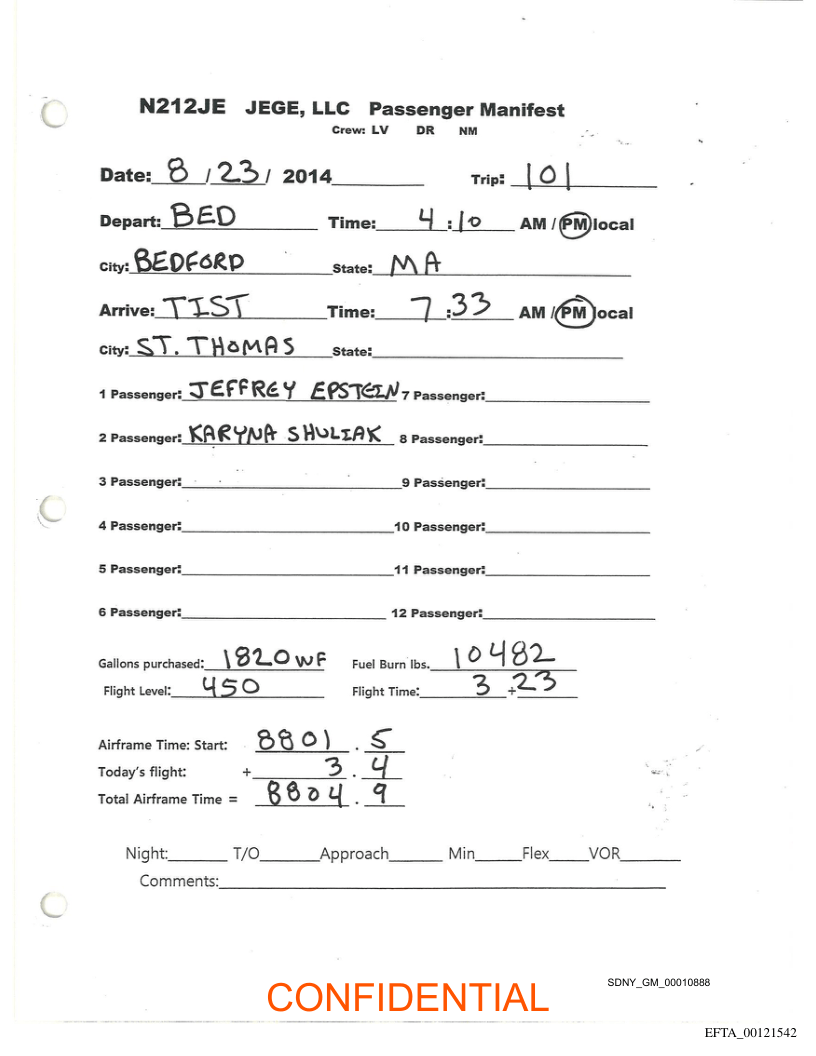 N212JE JEGE, LLC Passenger Manifest
Crew: LV DR NM
Date: 8 / 23 / 2014 Trip: 101
Depart: BED Time: 4 : 10 AM / PM local
City: BEDFORD State: MA
Arrive: TIST Time: 7 : 33 AM / PM local
City: ST. THOMAS State:
1 Passenger: JEFFREY EPSTEIN 7 Passenger:
2 Passenger: KARYNA SHULIAK 8 Passenger:
3 Passenger: 9 Passenger:
4 Passenger: 10 Passenger:
5 Passenger: 11 Passenger:
6 Passenger: 12 Passenger:
Gallons purchased: 1820 WF Fuel Burn lbs. 10482
Flight Level: 450 Flight Time: 3 + 23
Airframe Time: Start: 8801 . 5
Today's flight: + 3 . 4
Total Airframe Time = 8804 . 9
Night: T/O Approach Min Flex VOR
Comments:
SDNY_GM_00010888
CONFIDENTIAL
EFTA_00121542